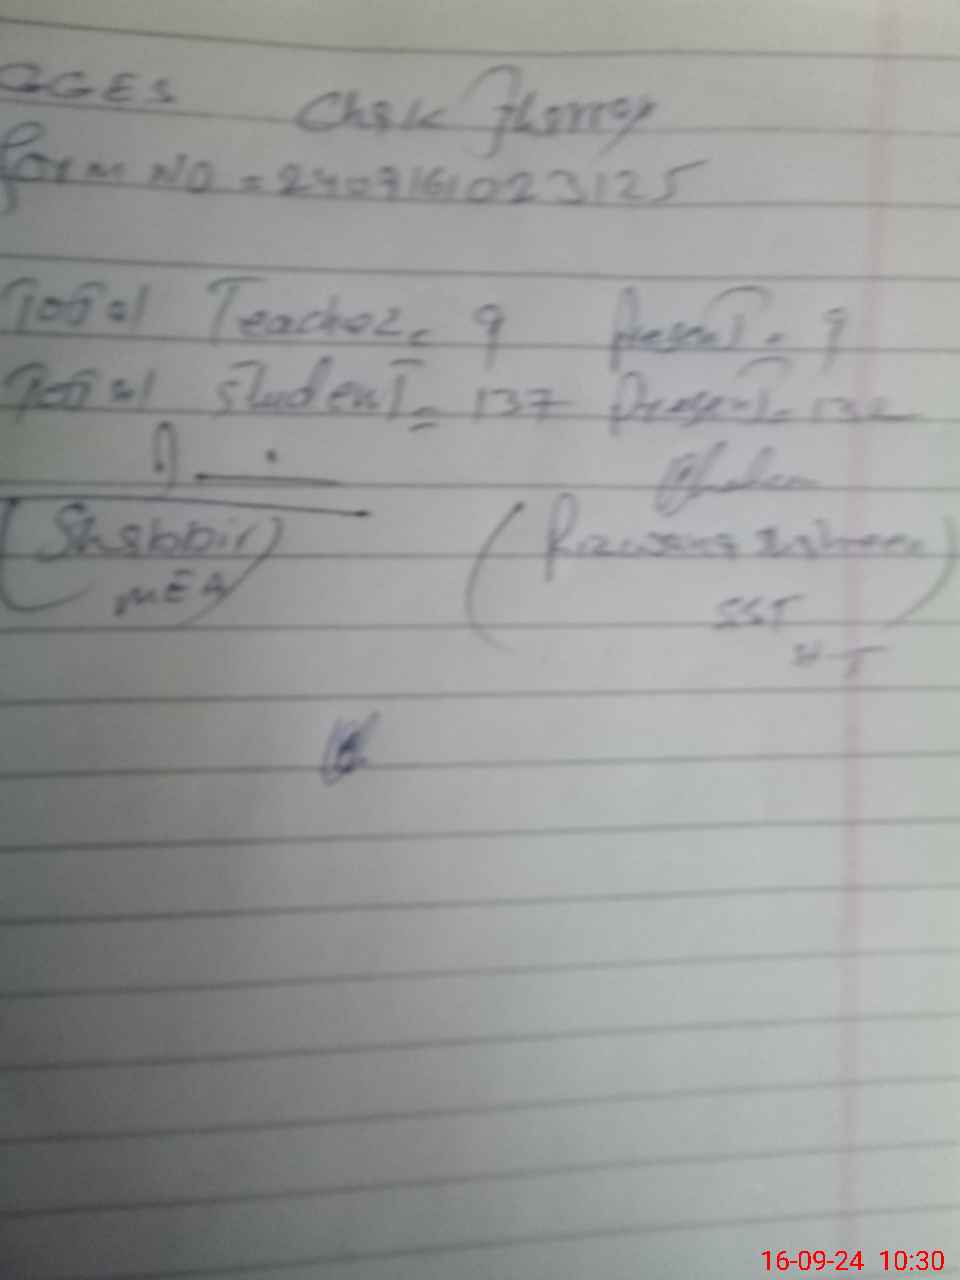 GGES Chak Jhomray
Form NO = 240916023125
Total Teacher = 9 Present = 9
Total Student = 137 Present = 132
(Shabbir) (Rizwana
MEA SST
HT
16-09-24 10:30